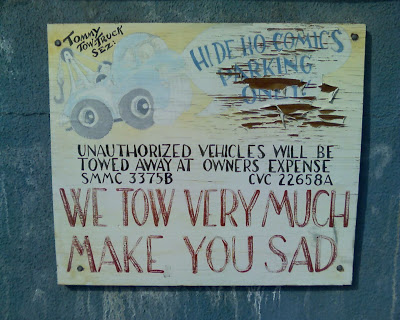 TOMMY
TOW-TRUCK
SEZ:
HIDE HO COMICS
PARKING
ONLY!
UNAUTHORIZED VEHICLES WILL BE
TOWED AWAY AT OWNERS EXPENSE
SMMC 3375B CVC 22658A
WE TOW VERY MUCH
MAKE YOU SAD